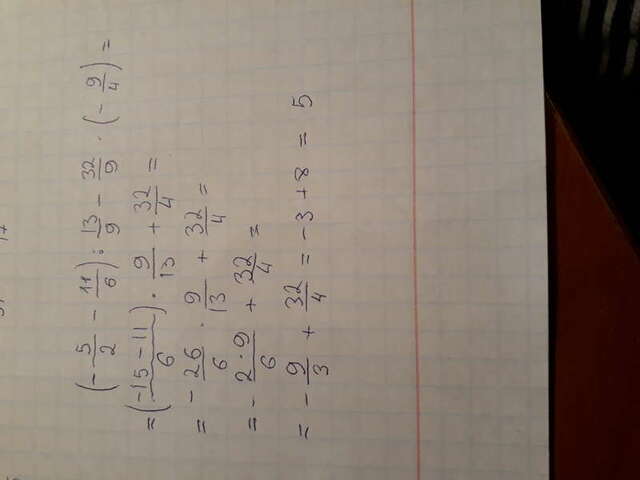 (- 5/2 - 11/6) : 13/9 - 32/9 · (- 9/4) =
= (-15 - 11 / 6) · 9/13 + 32/4 =
= - 26/6 · 9/13 + 32/4 =
= - 2 · 9 / 6 + 32/4 =
= - 9/3 + 32/4 = -3 + 8 = 5